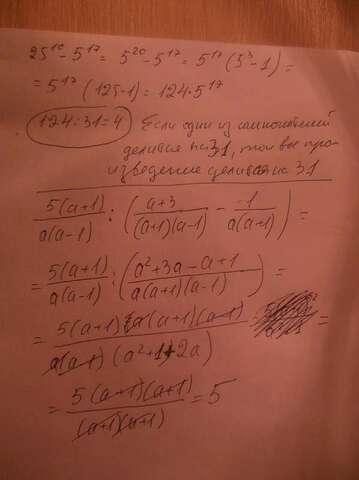 25¹⁰-5¹⁷ = 5²⁰-5¹⁷ = 5¹⁷(5³-1) =
= 5¹⁷(125-1) = 124·5¹⁷
124:31=4 Если один из множителей
делится на 31, то и все про
изведение делится на 31
5(a+1)/a(a-1) : ((a+3)/((a+1)(a-1)) - 1/(a(a+1))) =
= 5(a+1)/a(a-1) : ((a²+3a-a+1)/(a(a+1)(a-1))) =
= 5(a+1)(a(a+1)(a-1))/a(a-1)(a²+1+2a) = =
= 5(a+1)(a+1)/(a+1)(a+1) = 5